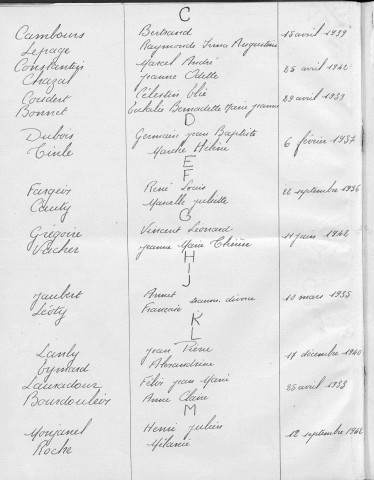 C
Cambours Bertrand 15 avril 1939
Lepage Raymonde Irma Augustine
Constantin Marcel André 25 avril 1942
Chazal Jeanne Odette
Coudert Célestin Elie 29 avril 1939
Bonnet Eulalie Bernadette Marie Jeanne
D
Dubois Germain Jean Baptiste 6 février 1937
Tinle Marthe Hélène
E
F
Farges René Louis 22 septembre 1936
Marcelle Juliette
G
Grégoire Vincent Léonard 11 juin 1942
Vacher Jeanne Marie Thérèse
H
I
J
Jaubert Annet 10 mars 1935
Léoty Françoise divorce
K
L
Lanly Jean Pierre 17 décembre 1940
Eymard Alexandrine
Lauradour Félix Jean Marie 25 avril 1933
Bourdouleix Anne Claire
M
Monjanel Henri Julien 12 septembre 1942
Roche Mélanie